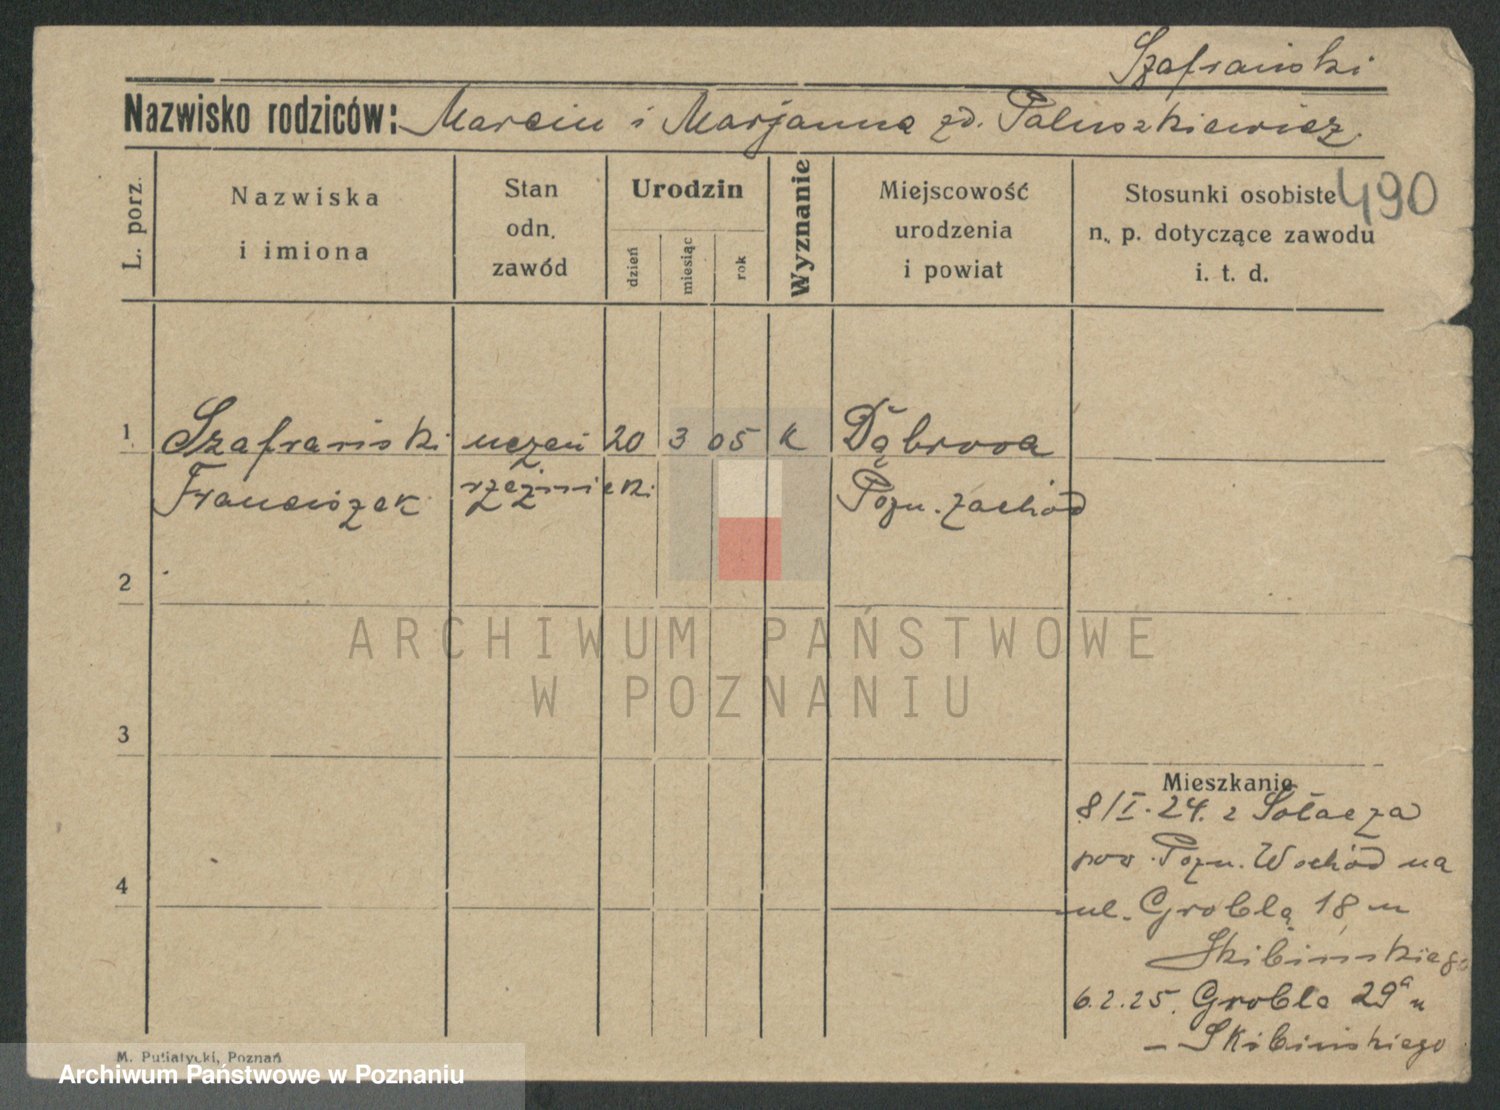 Szafrański
Nazwisko rodziców: Marcin i Marjanna zd. Paluszkiewicz.
L. porz.
Nazwiska
i imiona
Stan
odn.
zawód
Urodzin
dzień
miesiąc
rok
Wyznanie
Miejscowość
urodzenia
i powiat
Stosunki osobiste
n. p. dotyczące zawodu
i. t. d.
490
1 Szafrański uczeń 20 3 05 k Dąbrowa
Franciszek rzeźnicki Pozn. zachód
2
ARCHIWUM PAŃSTWOWE
W POZNANIU
3
Mieszkanie
8/I. 24. z Sołacza
pow. Pozn. Wschód na
4
ul. Groblą 18 u
Skibińskiego
6.2.25. Grobla 29a u
– Skibińskiego
M. Putiatycki, Poznań
Archiwum Państwowe w Poznaniu